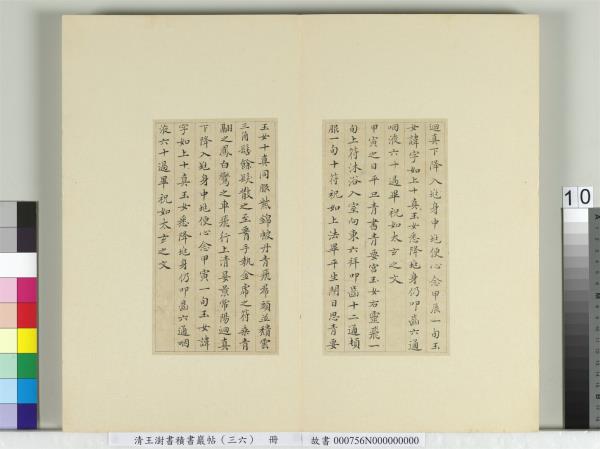 迴真下降入兆身中兆便心念甲辰一旬玉
女諱字如上十真玉女悉降兆身仍叩齒六通
咽液六十過畢祝如太玄之文
甲寅之日平旦青書青要宮玉女右靈飛一
旬上符沐浴入室向東六拜叩齒十二通頓
服一旬十符祝如上法畢平坐閉目思青要
玉女十真同服紫錦帔丹青飛帬頭並頹雲
三角髻餘髮散之至要手執金虎之符乘青
翮之鳳白鸞之車飛行上清晏景常陽迴真
下降入兆身中兆便心念甲寅一旬玉女諱
字如上十真玉女悉降兆身仍叩齒六通咽
液六十過畢祝如太玄之文
10
清王澍書積書巖帖（三六） 冊 故書 000756N000000000